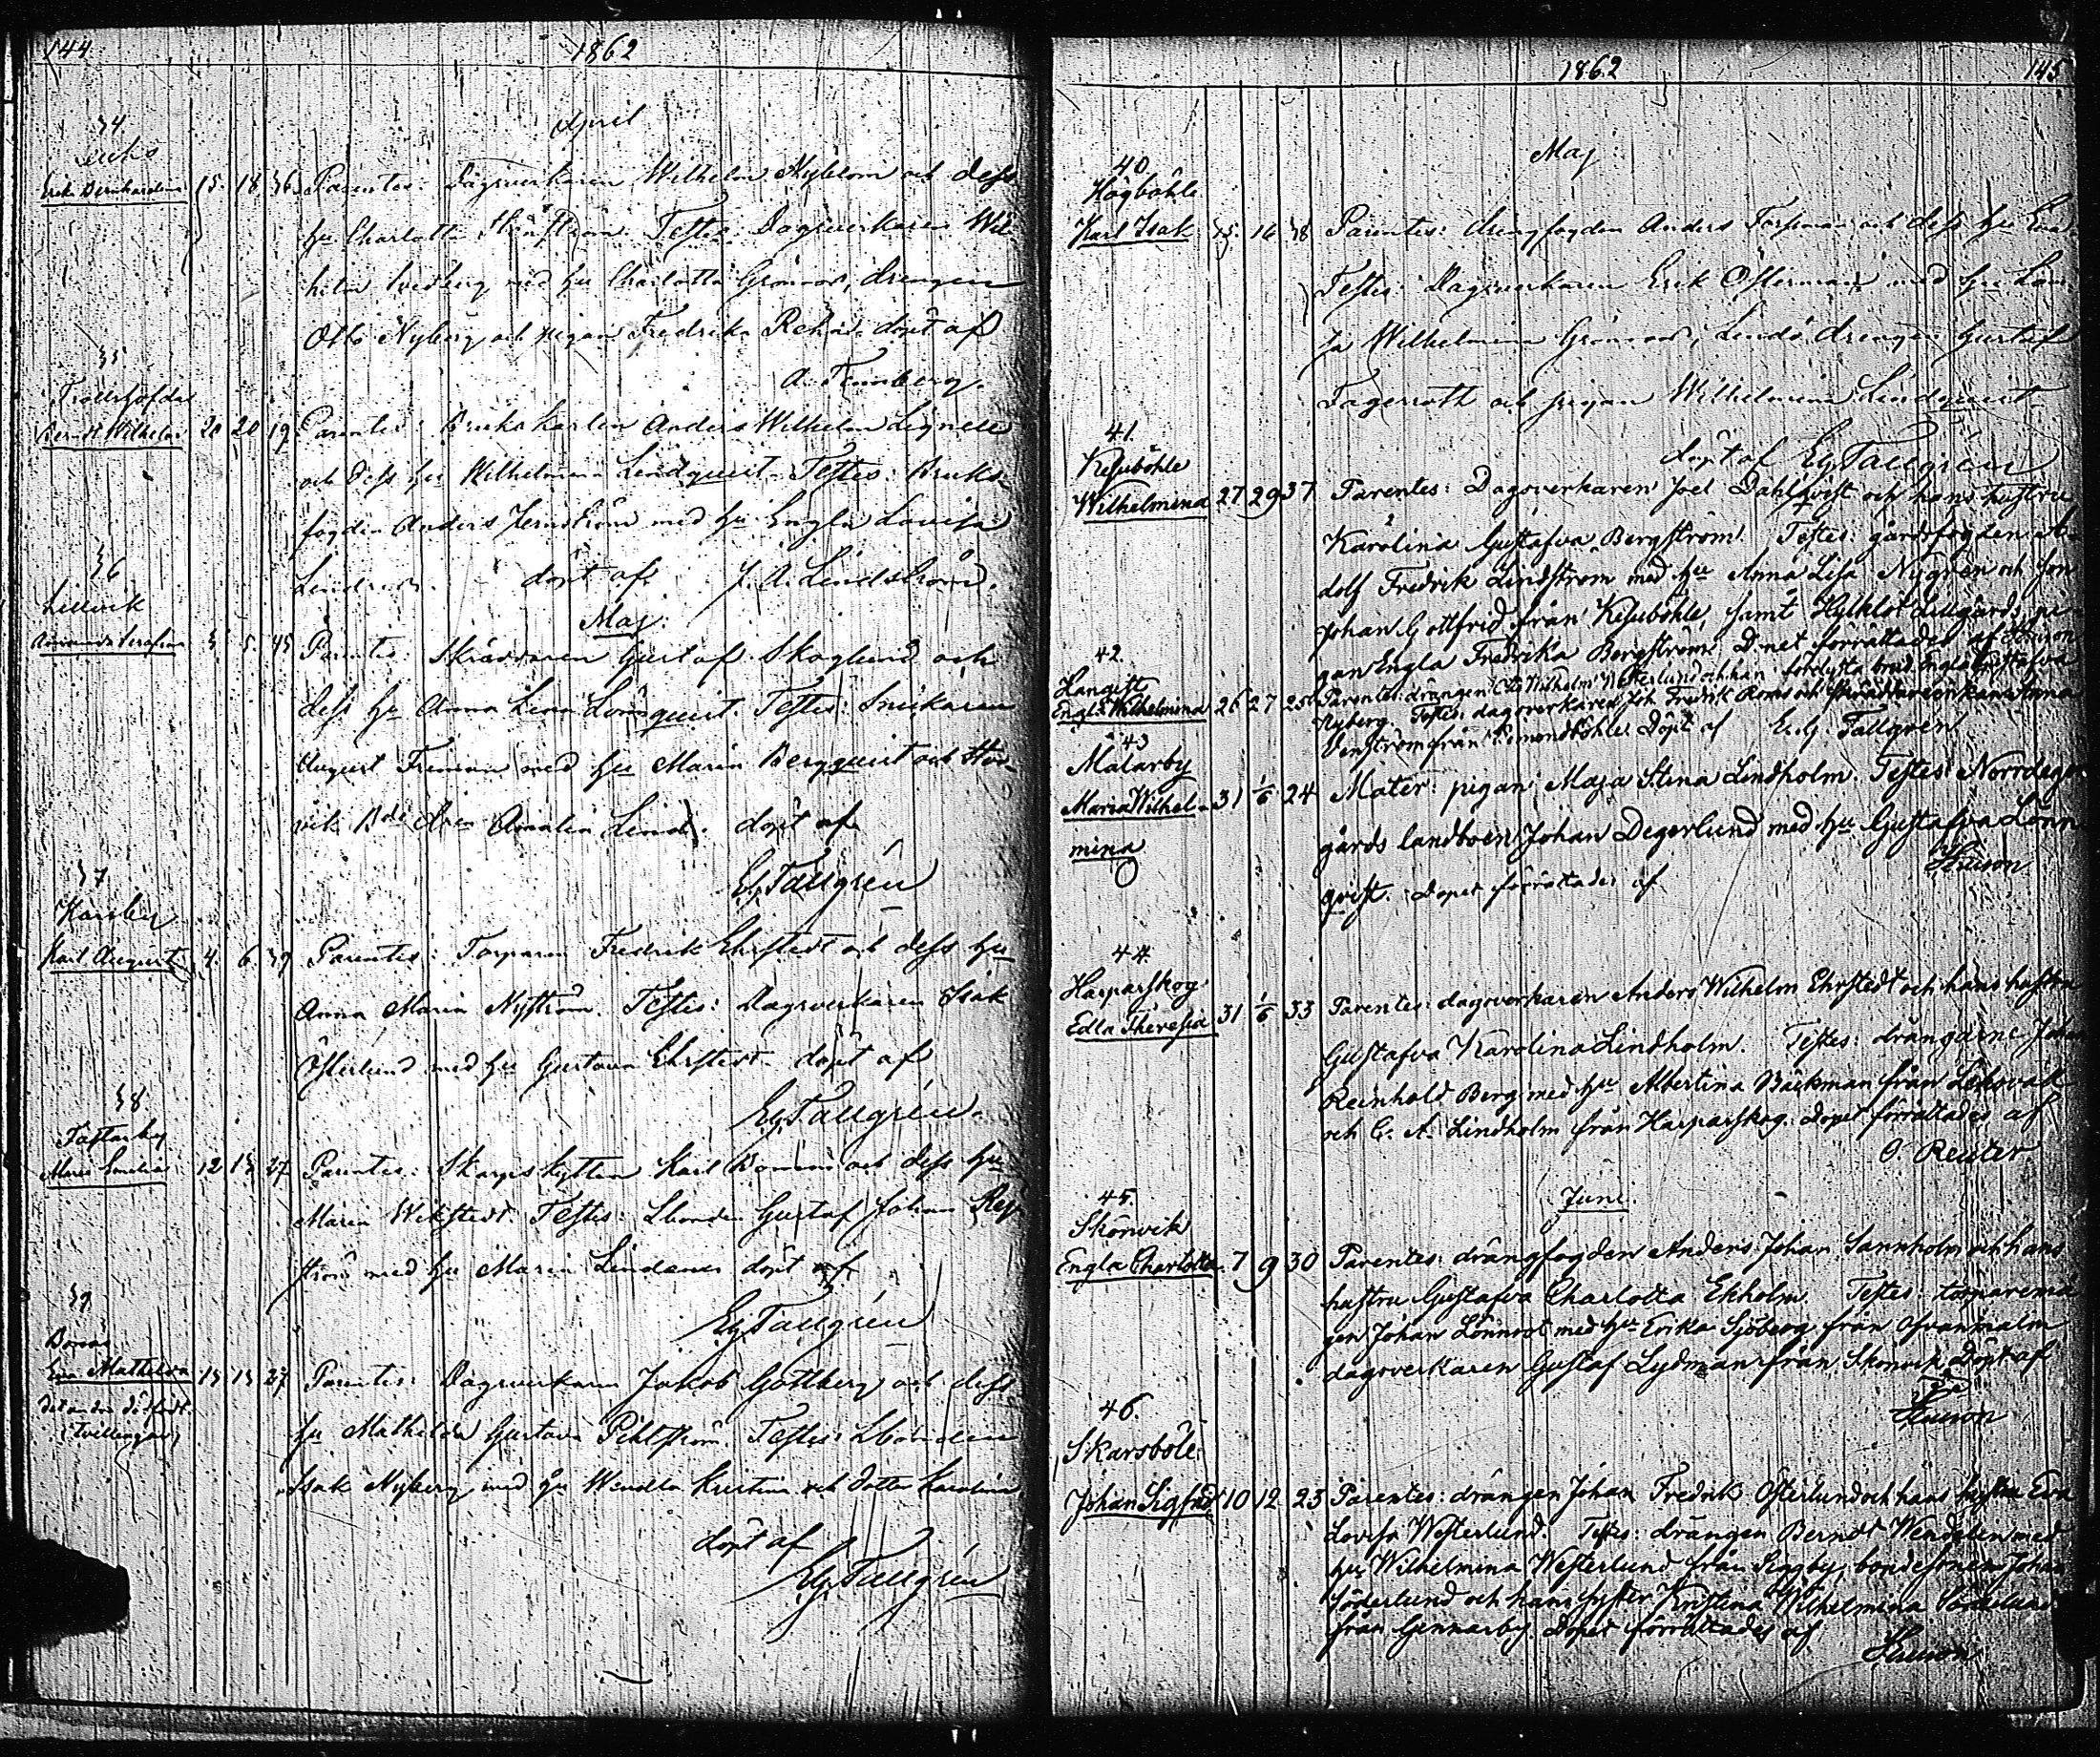 144
1862
April
34
Erik Bernhardin 15. 18 36 Parentes: Dagsverkaren Wilhelm Nyblom och dess
hu Charlotta Testes: Dagsverkaren Wil-
helm med hu Charlotta Grönroos, drengen
Otto Nyberg och pigan Fredrika döpt af
A. Tennberg.
35
Trollshofda
Berndt Wilhelm 20 20 19 Parentes: Anders Wilhelm Lignell
och dess hu Wilhelmina Lindquist. Testes: Bruks-
fogden Anders Jernström med hu Engla Lovisa
döpt af J. A. Lindström.
Maj
36
Lillvik
Amanda Serafina 3. 5. 45 Parentes: Skräddaren Gustaf Skoglund och
dess hu Anna Lena Lönnquist. Testes: Snickaren
August med hu Maria Bergquist och
vik Amalia Lind. döpt af
EgTallgrén
37
Karlby
Karl August 4. 6. 39 Parentes: Torparen Fredrik Ehrstedt och dess hu
Anna Maria Nyström. Testes: Dagsverkaren Isak
Österlund med hu Gustava Ehrstedt. döpt af
EgTallgrén.
38
Fastarby
Maria Emilia 12 13 27 Parentes: Skarpskytten Karl och dess hu
Maria Wikstedt. Testes: Lbonden Gustaf Johan
ström med hu Maria döpt af
EgTallgrén
39
Eva Mathilda 13 13 27 Parentes: Dagsverkaren Jakob Gottberg och dess
det andra dödfödt
(tvillingar)
hu Mathilda Gustava Pihlström. Testes: Lbonden
Isak Nyberg med hu Wendla Kristina och dotter Karolina
döpt af
EgTallgrén
1862 145
Maj
40.
Högböhle
Karl Isak 15. 16 38 Parentes: drengfogden Anders Forsman och dess hu Eva
Testes: Dagsverkaren Erik Österman med hu
sa Wilhelmina Grönroos, Lindö drengen Gustaf
Fagerroth och pigan Wilhelmina Lindquist
döpt af EgTallgrén
41.
Kisuböhle
Wilhelmina 27 29 37 Parentes: Dagsverkaren Joel Dahlqvist och hans hustru
Karolina Gustafva Bergström. Testes: gårdsfogden A-
dolf Fredrik Lindström med hu Anna Lisa Nygren och son
Johan Gottfrid från Kisuböhle, samt Lillgårds pi-
gan Engla Fredrika Bergström. D-net förrättades af
42.
Hangist
Engla Wilhelmina 26 27 25 Parentes: drängen Otto Wilhelm Westerlund och han trolofvta brud Engla Gustafva
Nyberg. Testes: dagsverkaren Joh. Fredrik och Anna
från Döpt af E. G. Tallgren
43
Mälarby
Maria Wilhel- 31 1/6 24 Mater: pigan Maja Stina Lindholm. Testes: Norrdeger-
mina
gårds landboen Johan Degerlund med hu Gustafva Lönn-
qvist. Dopet förrättades af
44.
Harparskog
Edla Theresia 31 1/6 33 Parentes: dagsverkaren Anders Wilhelm Ehrstedt och hans hustru
Gustafva Karolina Lindholm. Testes: drängarne Johan
Reinhold Berg med hu Albertina Bäckman från
och C. A. Lindholm från Harparskog. Dopet förrättades af
O. Reuter
Juni.
45.
Skönvik
Engla Charlotta 7 9 30 Parentes: drängfogden Anders Johan Sannholm och hans
hustru Gustafva Charlotta Ekholm. Testes: torparemå-
gen Johan Lönnroot med hu Erika Sjöberg från Ofvanmalm
dagsverkaren Gustaf Lydman från Skönvik. Döpt af
46.
Skarsböle
Johan Sigfrid 10 12 23 Parentes: drängen Johan Fredrik Österlund och hans hustru Eva
Lovisa Westerlund. Testes: drängen Berndt Wendelin med
hu Wilhelmina Westerlund från Seggby, bondesonen Johan
Söderlund och hans syster Kristina Wilhelmina Söderlund
från Gennarby. Dopet förrättades af